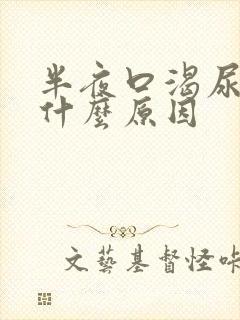 半夜口渴尿
什麼原因
文藝基督怪咔